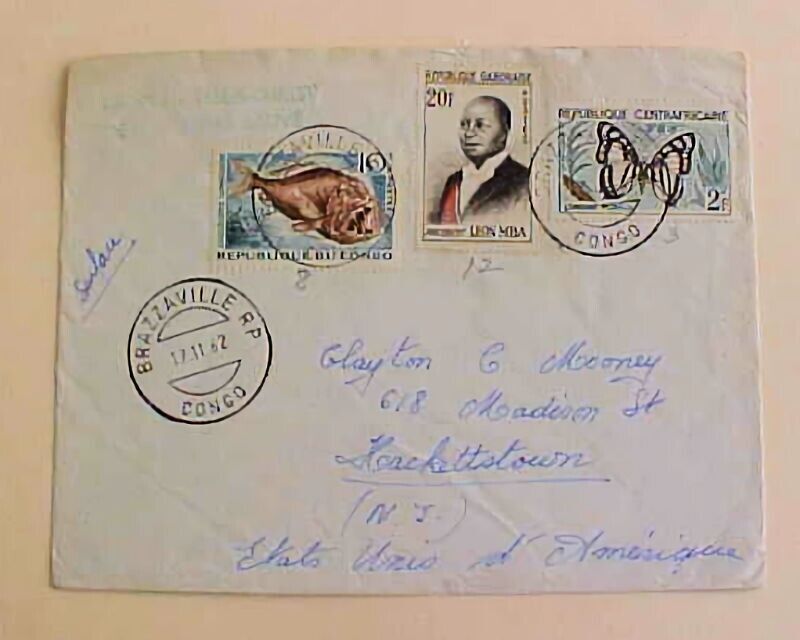 REPUBLIQUE GABONAISE
20F
POSTES
LEON MBA
REPUBLIQUE CENTRAFRICAINE
2F
REPUBLIQUE DU CONGO
CONGO
8
12
3
BRAZZAVILLE RP
17.11.62
CONGO
Clayton C Mooney
618 Madison St
Hackettstown
(N J.)
Etats Unis d'Amérique